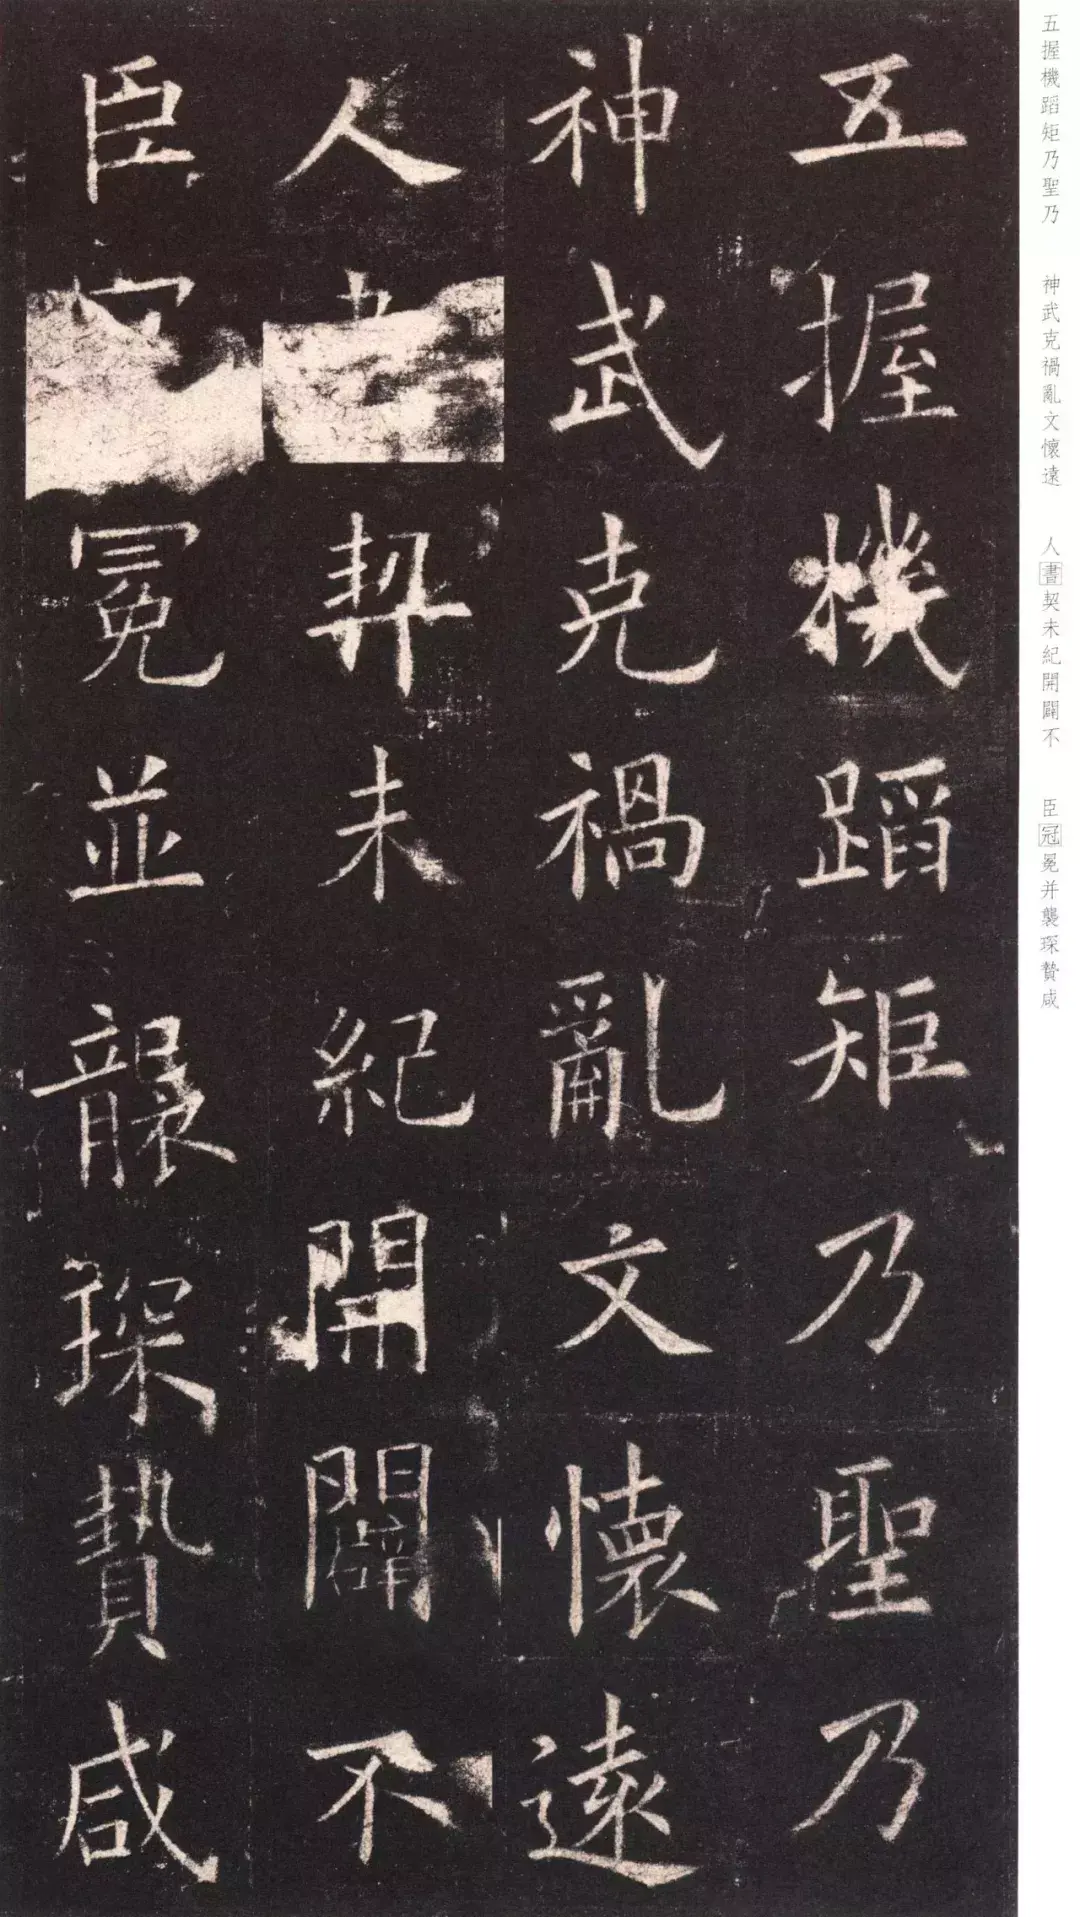 五握機蹈矩乃聖乃
神武克禍亂文懷遠
人契未紀開闢不
臣冕並襲琛贄咸
五握機蹈矩乃聖乃
神武克禍亂文懷遠
人書契未紀開闢不
臣冠冕并襲琛贄咸